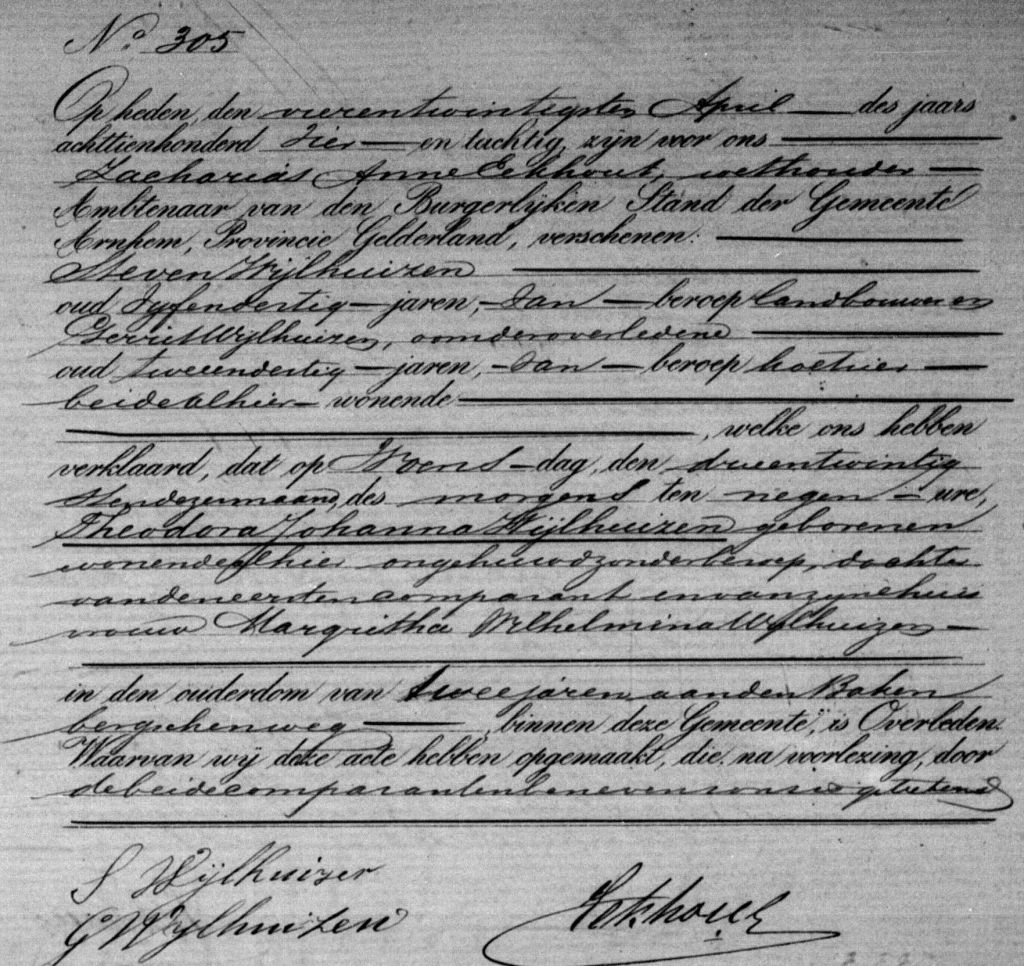 No. 305
Op heden, den vierentwintigsten April des jaars
achttienhonderd vier en tachtig, zijn voor ons
Zacharias Anne Eekhout, wethouder
Ambtenaar van den Burgerlijken Stand der Gemeente
Arnhem, Provincie Gelderland, verschenen:
Steven Wijlhuizen
oud vyfendertig jaren, van beroep landbouwer en
Gerrit Wylhuizen, oom der overledene
oud tweeendertig jaren, van beroep koetsier
beide alhier wonende
, welke ons hebben
verklaard, dat op Woensdag, den drieentwintig
sten dezer maand, des morgens ten negen ure,
Theodora Johanna Wijlhuizen geboren en
wonende alhier ongehuwd zonder beroep, dochter
van den eersten comparant en van zyne huis
vrouw Margritha Wilhelmina Wylhuizen
in den ouderdom van twee jaren aan den Baken
bergschenweg binnen deze Gemeente, is Overleden.
Waarvan wij deze acte hebben opgemaakt, die na voorlezing, door
de beide comparanten benevens ons is geteekend
S Wijlhuizen
G Wylhuizen
Eekhout